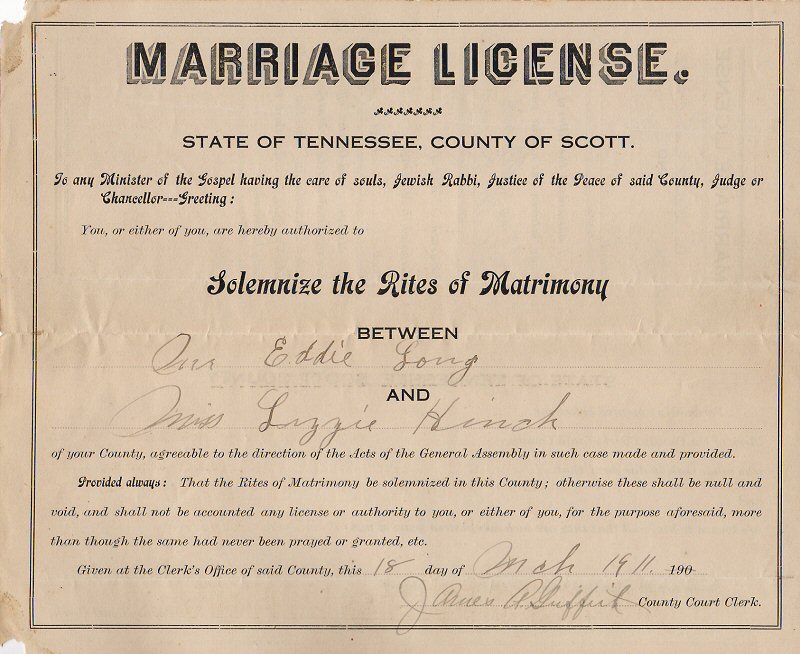 MARRIAGE LICENSE.
STATE OF TENNESSEE, COUNTY OF SCOTT.
To any Minister of the Gospel having the care of souls, Jewish Rabbi, Justice of the Peace of said County, Judge or
Chancellor---Greeting:
You, or either of you, are hereby authorized to
Solemnize the Rites of Matrimony
BETWEEN
Eddie Long
AND
Miss Lizzie Hinch
of your County, agreeable to the direction of the Acts of the General Assembly in such case made and provided.
Provided always: That the Rites of Matrimony be solemnized in this County; otherwise these shall be null and
void, and shall not be accounted any license or authority to you, or either of you, for the purpose aforesaid, more
than though the same had never been prayed or granted, etc.
Given at the Clerk's Office of said County, this 18 day of Mch 1911. 190
James County Court Clerk.